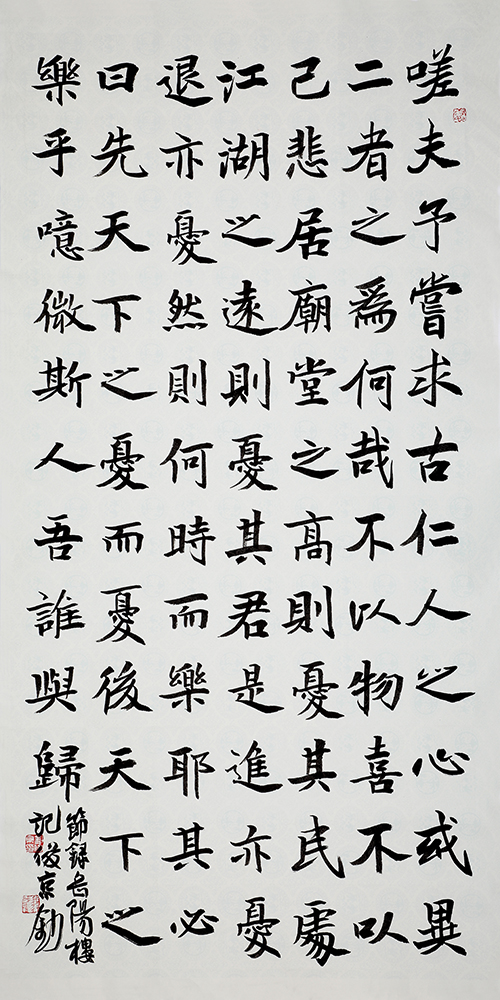 嗟夫予嘗求古仁人之心或異
二者之爲何哉不以物喜不以
己悲居廟堂之高則憂其民處
江湖之遠則憂其君是進亦憂
退亦憂然則何時而樂耶其必
曰先天下之憂而憂後天下之
樂乎噫微斯人吾誰與歸
節錄岳陽樓
記